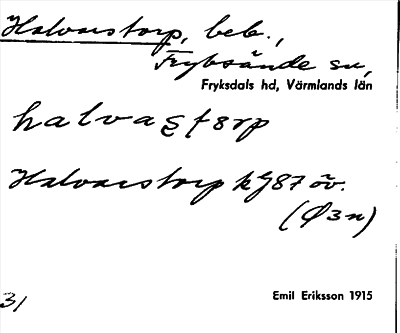 Halvarstorp, beb.,
Fryksände sn,
Fryksdals hd, Värmlands län
halvaștorp
Halvarstorp kj87 öv.
(Ø3n)
31
Emil Eriksson 1915